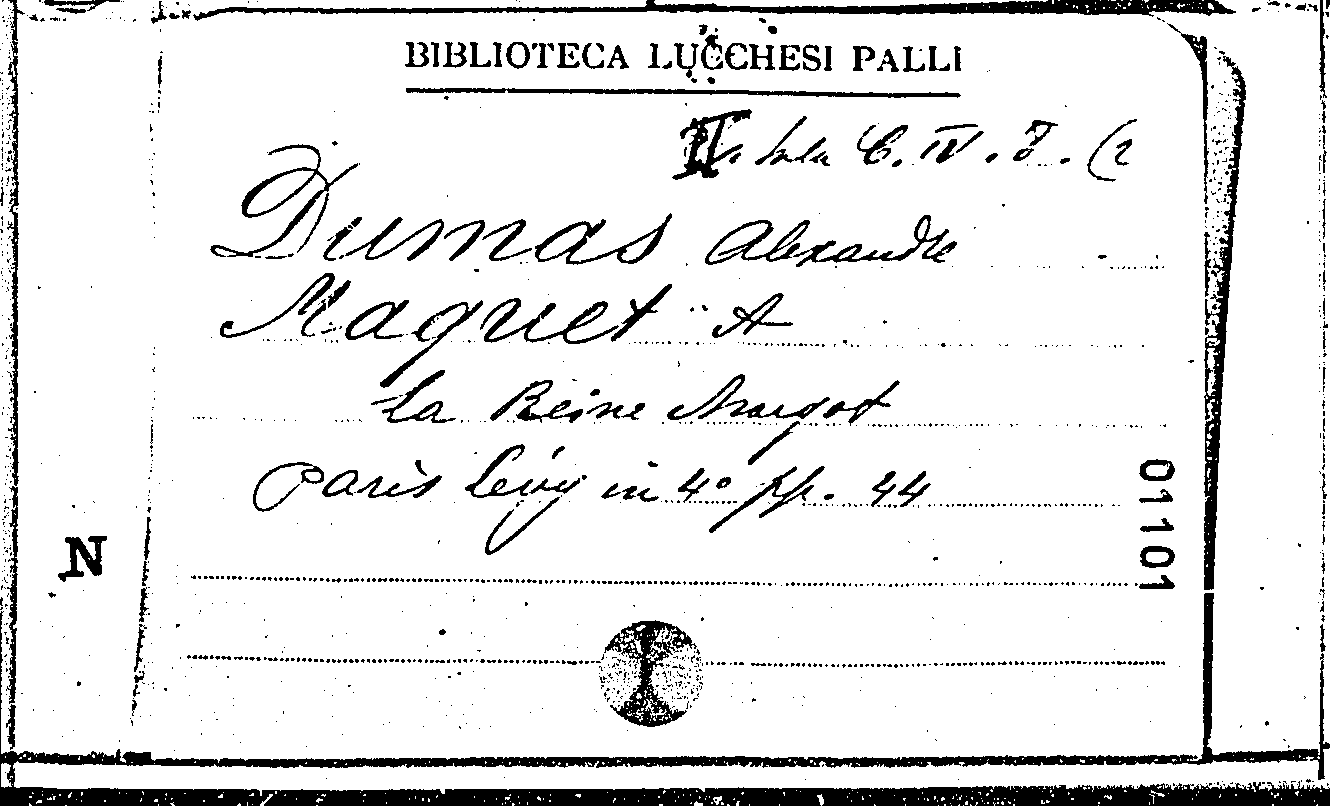 BIBLIOTECA LUCCHESI PALLI
II. Sala C. IV. 7. (2
Dumas Alexandre
Maquet A
La Reine Margot
Paris Lévy in 4° pp. 44
01101
N